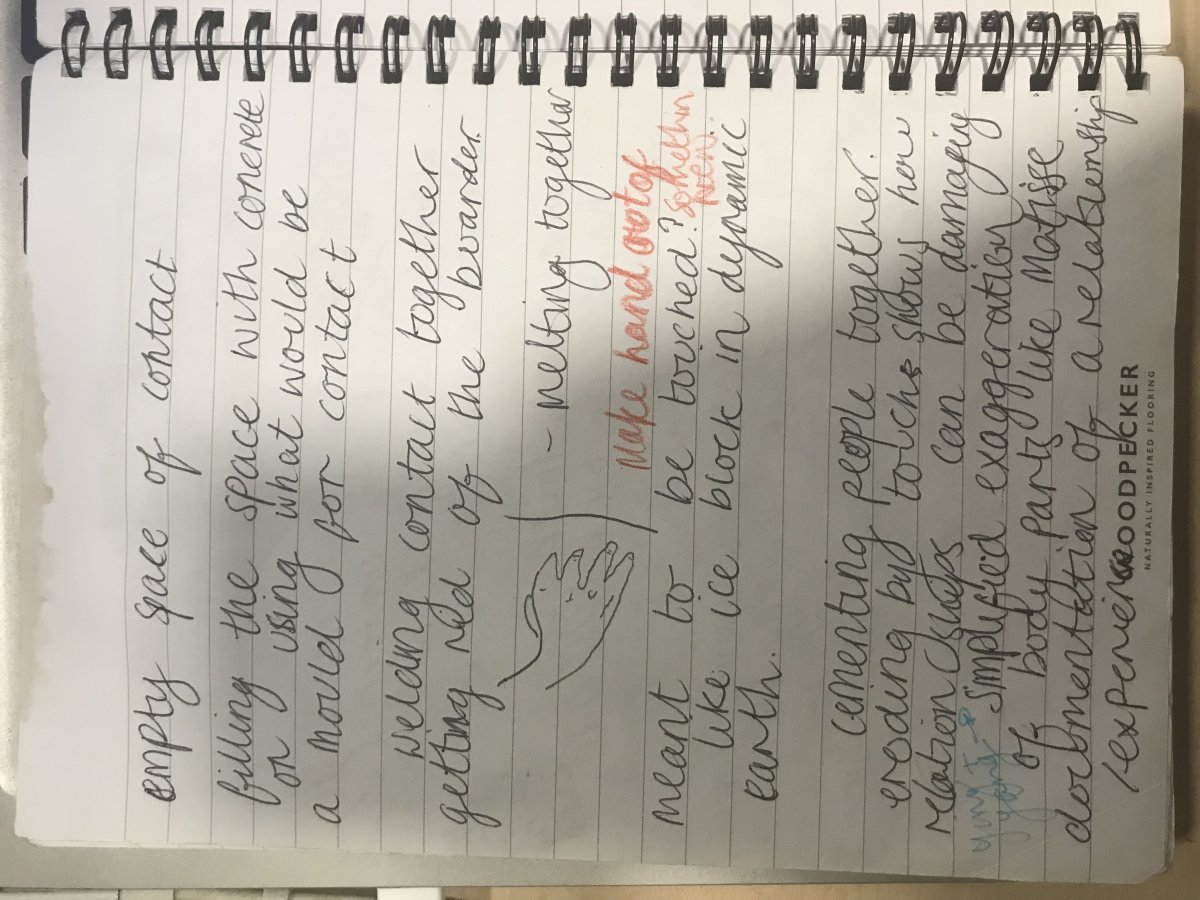 empty space of contact
filling the space with concrete
or using what would be
a mould for contact
welding contact together
getting rid of the boarder
- melting together
Make hand out of
somethin
meant to be touched?
like ice block in dynamic
earth.
cementing people together.
eroding by touch shows how
relationships can be damaging
simplified exaggeration
of body parts like Matisse
documentation of a relationship
/experience
WOODPECKER
NATURALLY INSPIRED FLOORING